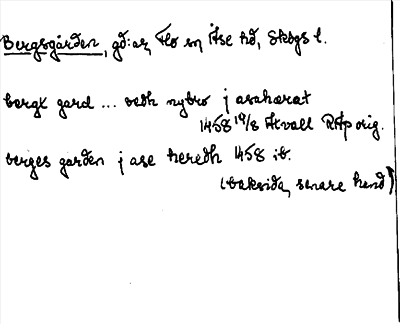 Bergsgården, gd:ar, Flo sn, Åse hd, Skbgs l.
bergx gard ... vedh nybro j asahærat
1458 19/8 Åkvall RAp orig.
berges garden j ase heredh 1458 ib.
(baksida, senare hand)